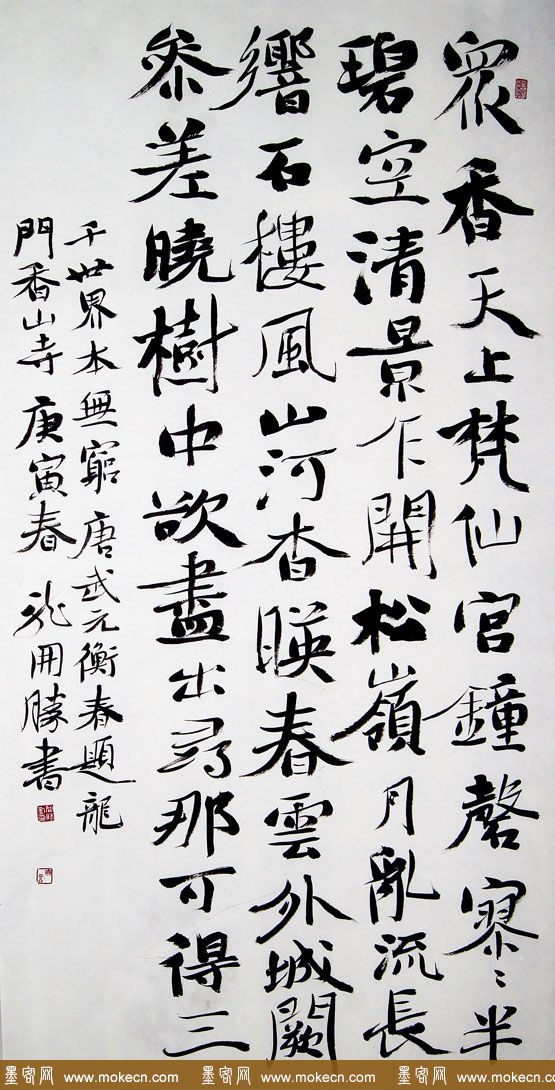 衆香天上梵仙宮鐘磬寥〻半
碧空清景乍開松嶺月亂流長
響石樓風山河杳暎春雲外城闕
參差曉樹中欲盡出尋那可得三
千世界本無窮唐武元衡春題龍
門香山寺庚寅春龙開勝書
墨客网 www.mokecn.com 墨客网 www.mokecn.com 墨客网 www.mokecn.com